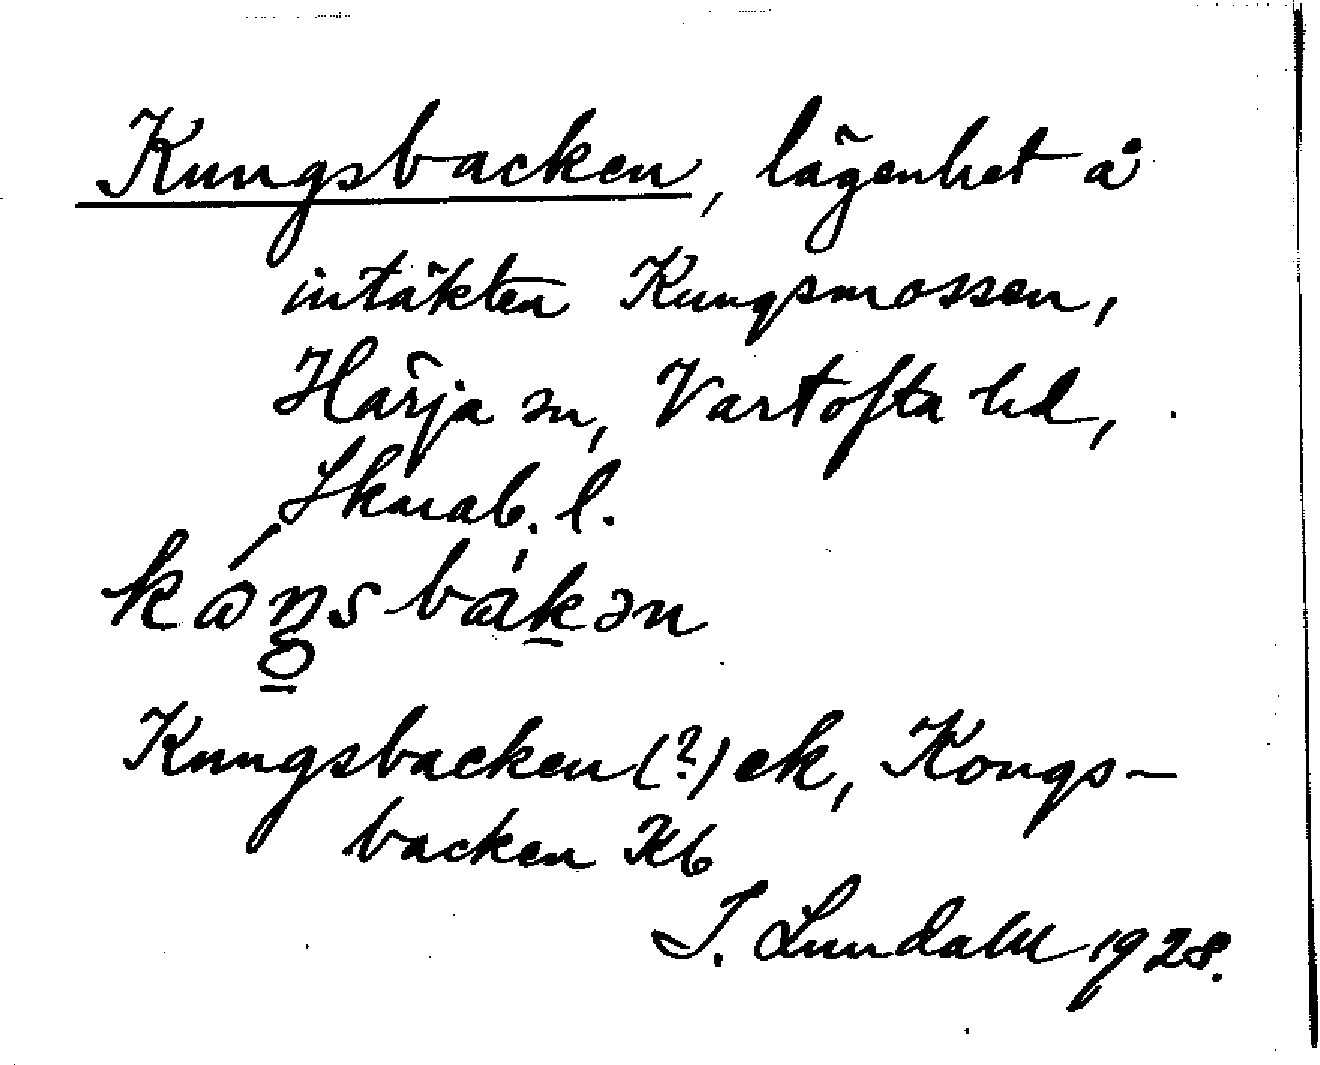 Kungsbacken, lägenhet å
intäkten Kungsmossen,
Härja sn, Vartofta hd,
Skarab. l.
Kungsbacken (?) ek, Kongs-
backen Kb
I. Lundahl 1928.